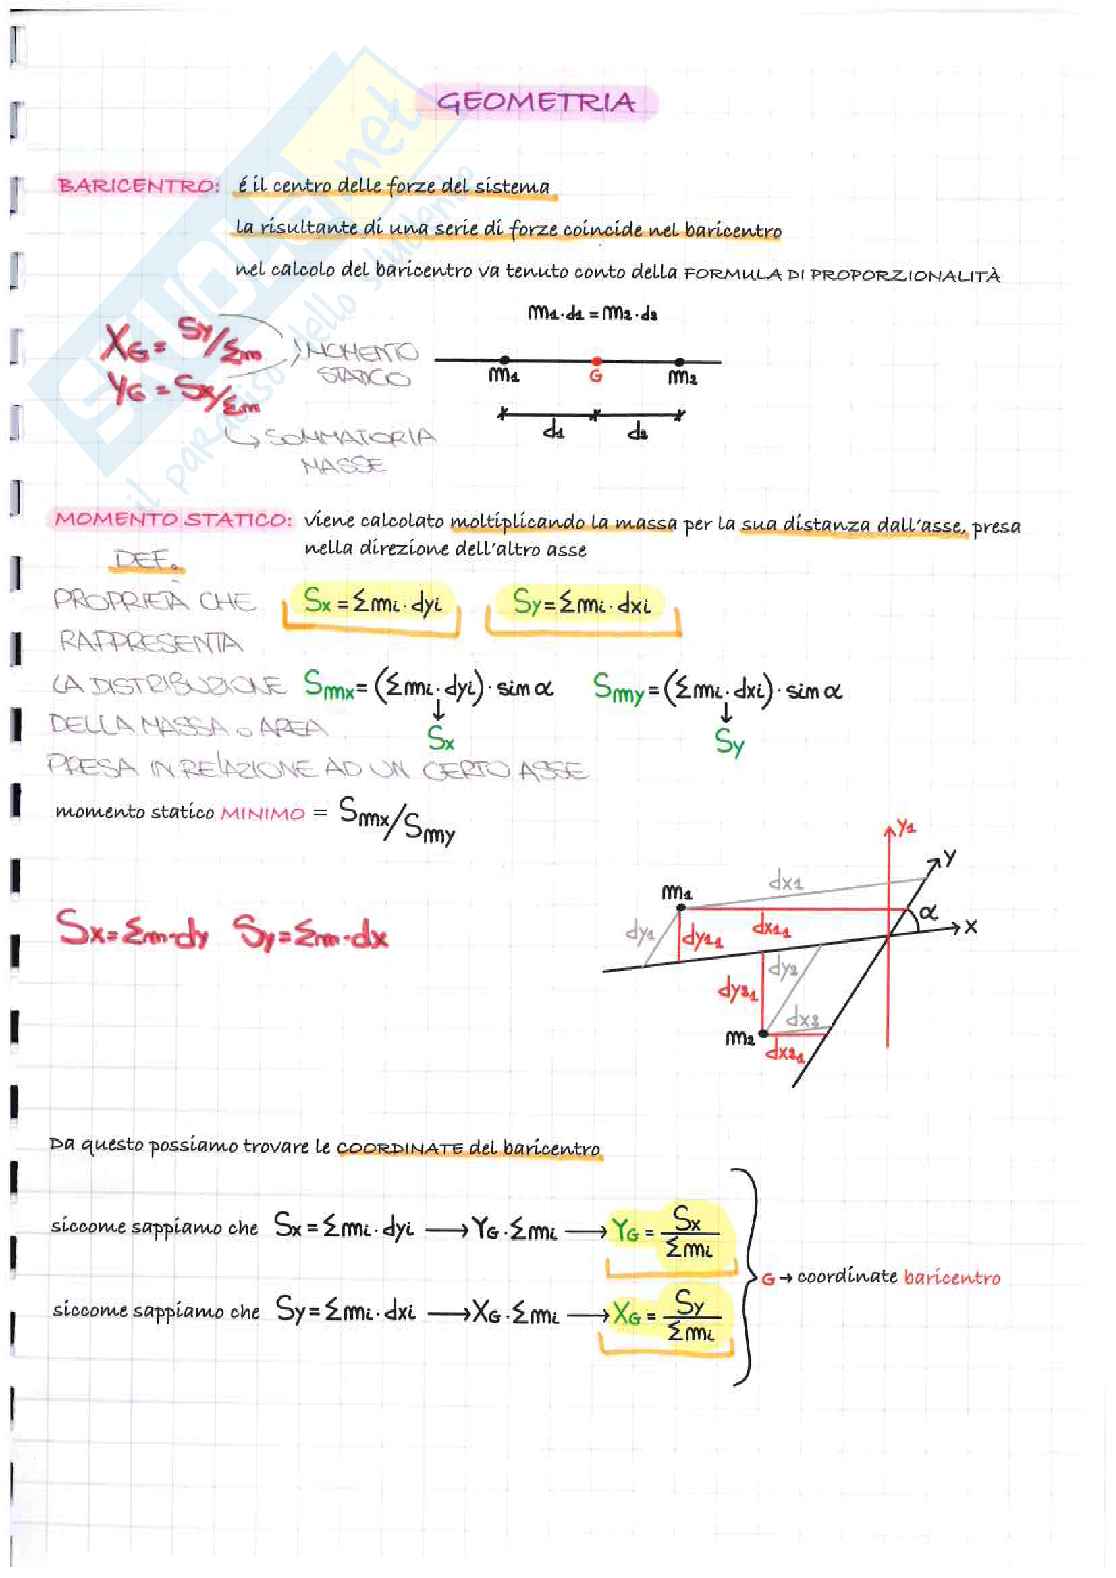 GEOMETRIA
BARICENTRO: é il centro delle forze del sistema
la risultante di una serie di forze coincide nel baricentro
nel calcolo del baricentro va tenuto conto della FORMULA DI PROPORZIONALITÀ
m1·d1=m2·d2
XG = Sy/Σm
YG = Sx/Σm
MOMENTO
STATICO
m1 G m2
d1 d2
↳ SOMMATORIA
MASSE
MOMENTO STATICO: viene calcolato moltiplicando la massa per la sua distanza dall'asse, presa
nella direzione dell'altro asse
DEF.
PROPRIETÀ CHE
RAPPRESENTA
LA DISTRIBUZIONE
DELLA MASSA o AREA
PRESA IN RELAZIONE AD UN CERTO ASSE
Sx=Σmi·dyi Sy=Σmi·dxi
Smx=(Σmi·dyi)·sinα Smy=(Σmi·dxi)·sinα
↓ ↓
Sx Sy
momento statico MINIMO = Smx/Smy
Sx=Σm·dy Sy=Σm·dx
Y1
Y
dx1
m1
α
X
dy1
dy11
dx11
dy2
dy21
dx2
m2
dx21
Da questo possiamo trovare le COORDINATE del baricentro
siccome sappiamo che Sx=Σmi·dyi → YG·Σmi → YG = Sx/Σmi
G → coordinate baricentro
siccome sappiamo che Sy=Σmi·dxi → XG·Σmi → XG = Sy/Σmi
SKUOLA.net
il paradiso dello studente